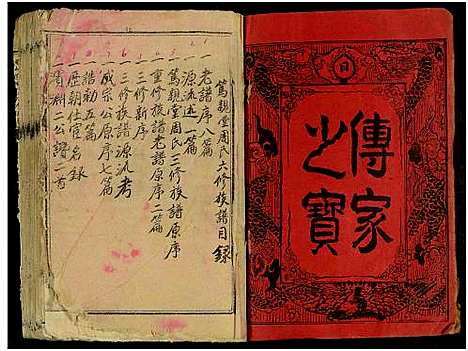 傳家之寶
篤親堂周氏六修族譜目錄
一老譜序八篇
一源流述一篇
一篤親堂周氏三修族譜原序
一重修族譜老譜原序二篇
一三修新序
一三修族譜源流考
一成宗公原序七篇
一誥勅五篇
一歷朝仕宦名錄